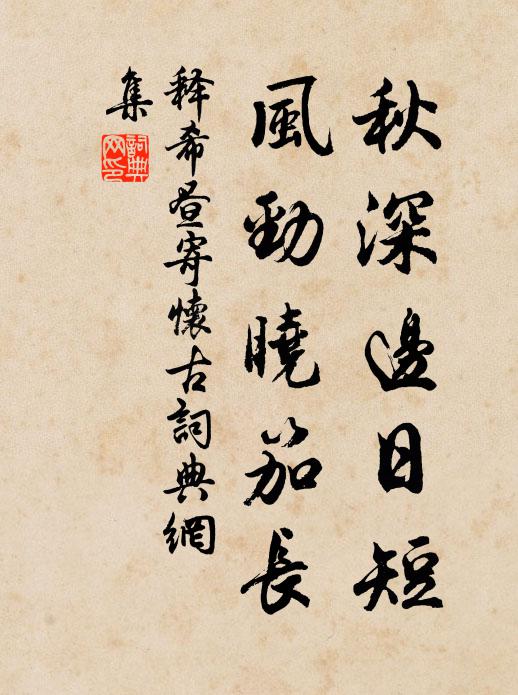 秋深邊日短
風勁曉笳長
释希昼寄懷古詞典網
集
詞典
网印